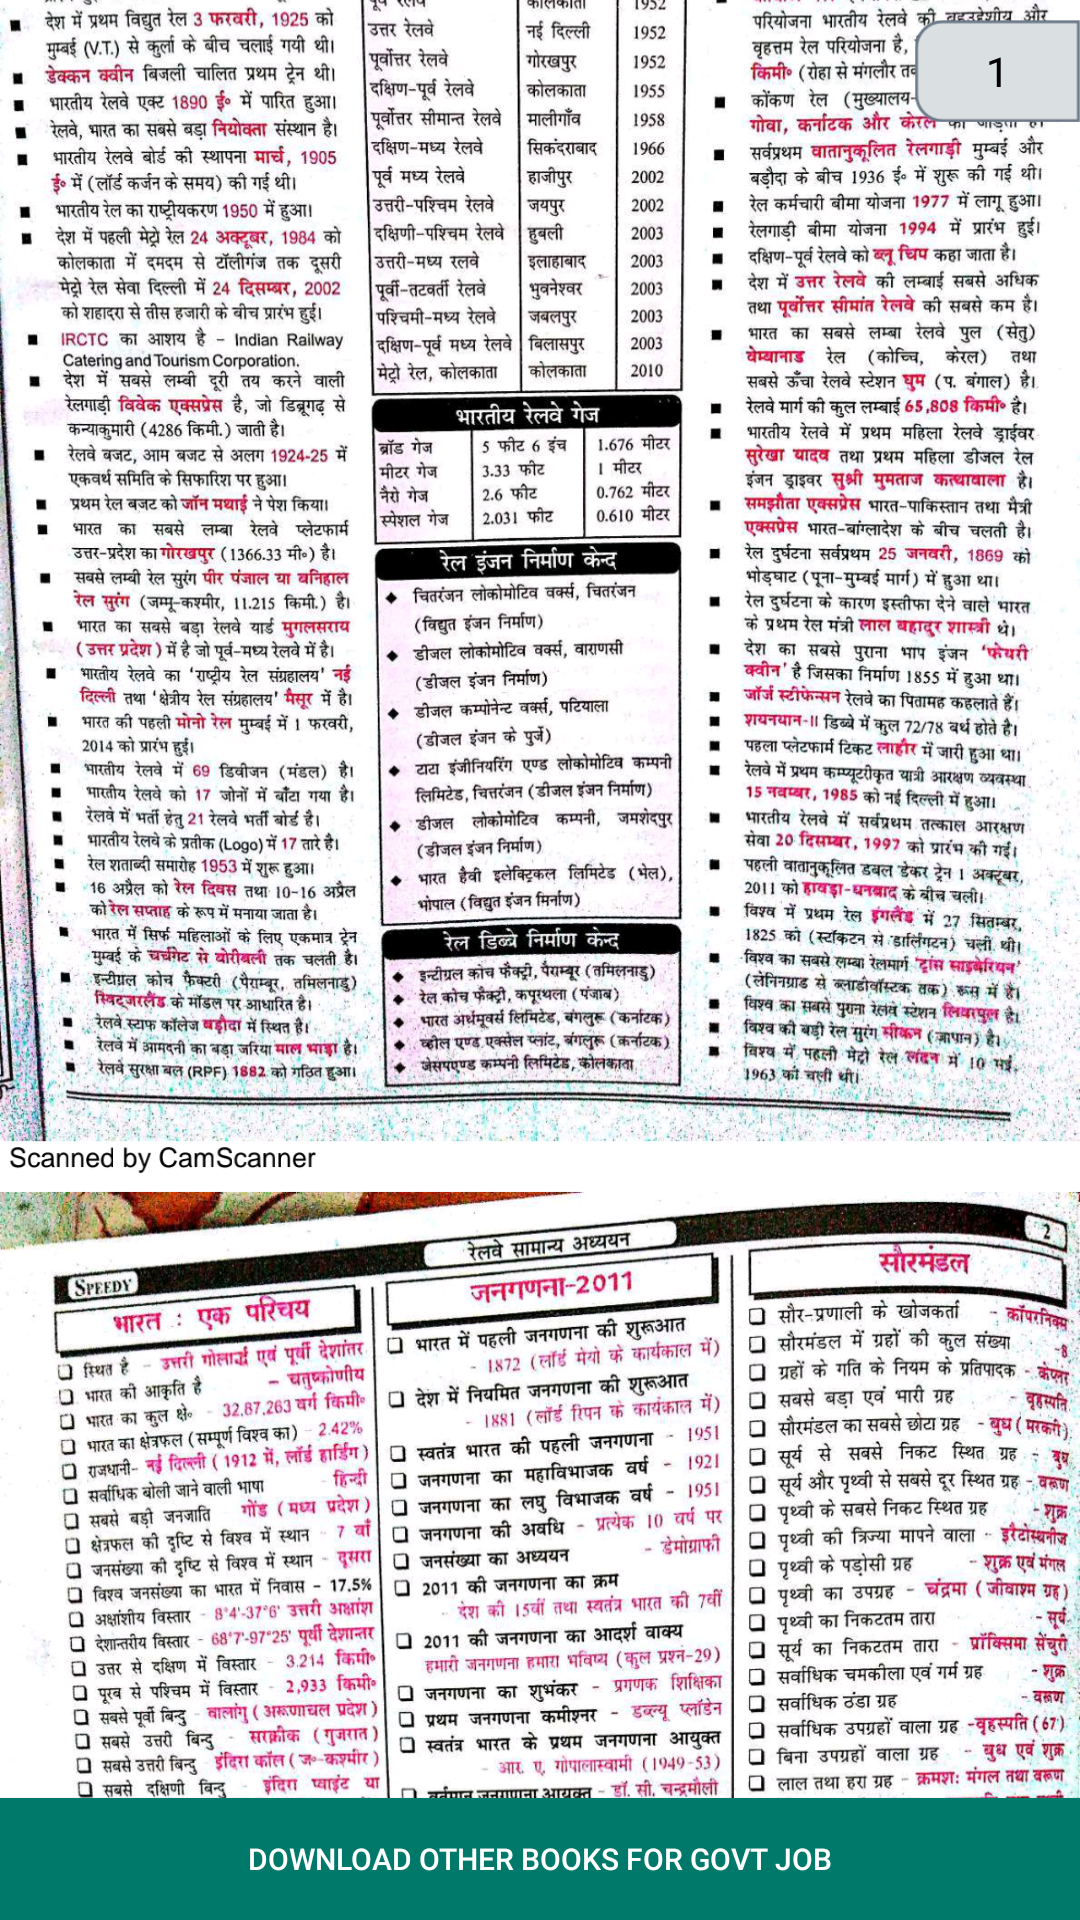 देश में प्रथम विद्युत रेल 3 फरवरी, 1925 को
मुम्बई (V.T.) से कुर्ला के बीच चलाई गयी थी।
डेक्कन क्वीन बिजली चालित प्रथम ट्रेन थी।
भारतीय रेलवे एक्ट 1890 ई॰ में पारित हुआ।
रेलवे, भारत का सबसे बड़ा नियोक्ता संस्थान है।
भारतीय रेलवे बोर्ड की स्थापना मार्च, 1905
ई॰ में (लॉर्ड कर्जन के समय) की गई थी।
भारतीय रेल का राष्ट्रीयकरण 1950 में हुआ।
देश में पहली मेट्रो रेल 24 अक्टूबर, 1984 को
कोलकाता में दमदम से टॉलीगंज तक दूसरी
मेट्रो रेल सेवा दिल्ली में 24 दिसम्बर, 2002
को शहादरा से तीस हजारी के बीच प्रारंभ हुई।
IRCTC का आशय है – Indian Railway
Catering and Tourism Corporation.
देश में सबसे लम्बी दूरी तय करने वाली
रेलगाड़ी विवेक एक्सप्रेस है, जो डिब्रूगढ़ से
कन्याकुमारी (4286 किमी.) जाती है।
रेलवे बजट, आम बजट से अलग 1924-25 में
एकवर्थ समिति के सिफारिश पर हुआ।
प्रथम रेल बजट को जॉन मथाई ने पेश किया।
भारत का सबसे लम्बा रेलवे प्लेटफार्म
उत्तर-प्रदेश का गोरखपुर (1366.33 मी॰) है।
सबसे लम्बी रेल सुरंग पीर पंजाल या बनिहाल
रेल सुरंग (जम्मू-कश्मीर, 11.215 किमी.) है।
भारत का सबसे बड़ा रेलवे यार्ड मुगलसराय
(उत्तर प्रदेश) में है जो पूर्व-मध्य रेलवे में है।
भारतीय रेलवे का 'राष्ट्रीय रेल संग्रहालय' नई
दिल्ली तथा 'क्षेत्रीय रेल संग्रहालय' मैसूर में है।
भारत की पहली मोनो रेल मुम्बई में 1 फरवरी,
2014 को प्रारंभ हुई।
भारतीय रेलवे में 69 डिवीजन (मंडल) है।
भारतीय रेलवे को 17 जोनों में बाँटा गया है।
रेलवे में भर्ती हेतु 21 रेलवे भर्ती बोर्ड है।
भारतीय रेलवे के प्रतीक (Logo) में 17 तारे है।
रेल शताब्दी समारोह 1953 में शुरू हुआ।
16 अप्रैल को रेल दिवस तथा 10-16 अप्रैल
को रेल सप्ताह के रूप में मनाया जाता है।
भारत में सिर्फ महिलाओं के लिए एकमात्र ट्रेन
मुम्बई के चर्चगेट से बोरीबली तक चलती है।
इन्टीग्रल कोच फैक्टरी (पैराम्बूर, तमिलनाडु)
स्विट्जरलैंड के मॉडल पर आधारित है।
रेलवे स्टाफ कॉलेज बड़ौदा में स्थित है।
रेलवे में आमदनी का बड़ा जरिया माल भाड़ा है।
रेलवे सुरक्षा बल (RPF) 1882 को गठित हुआ।
पूर्व रेलवे कोलकाता 1952
उत्तर रेलवे नई दिल्ली 1952
पूर्वोत्तर रेलवे गोरखपुर 1952
दक्षिण-पूर्व रेलवे कोलकाता 1955
पूर्वोत्तर सीमान्त रेलवे मालीगाँव 1958
दक्षिण-मध्य रेलवे सिकंदराबाद 1966
पूर्व मध्य रेलवे हाजीपुर 2002
उत्तरी-पश्चिम रेलवे जयपुर 2002
दक्षिणी-पश्चिम रेलवे हुबली 2003
उत्तरी-मध्य रलवे इलाहाबाद 2003
पूर्वी-तटवर्ती रेलवे भुवनेश्वर 2003
पश्चिमी-मध्य रेलवे जबलपुर 2003
दक्षिण-पूर्व मध्य रेलवे बिलासपुर 2003
मेट्रो रेल, कोलकाता कोलकाता 2010
भारतीय रेलवे गेज
ब्रॉड गेज 5 फीट 6 इंच 1.676 मीटर
मीटर गेज 3.33 फीट 1 मीटर
नैरो गेज 2.6 फीट 0.762 मीटर
स्पेशल गेज 2.031 फीट 0.610 मीटर
रेल इंजन निर्माण केन्द
चितरंजन लोकोमोटिव वर्क्स, चितरंजन
(विद्युत इंजन निर्माण)
डीजल लोकोमोटिव वर्क्स, वाराणसी
(डीजल इंजन निर्माण)
डीजल कम्पोनेन्ट वर्क्स, पटियाला
(डीजल इंजन के पुर्जे)
टाटा इंजीनियरिंग एण्ड लोकोमोटिव कम्पनी
लिमिटेड, चित्तरंजन (डीजल इंजन निर्माण)
डीजल लोकोमोटिव कम्पनी, जमशेदपुर
(डीजल इंजन निर्माण)
भारत हैवी इलेक्ट्रिकल लिमिटेड (भेल),
भोपाल (विद्युत इंजन मिर्नाण)
रेल डिब्बे निर्माण केन्द
इन्टीग्रल कोच फैक्ट्री, पैराम्बूर (तमिलनाडु)
रेल कोच फैक्ट्री, कपूरथला (पंजाब)
भारत अर्थमूवर्स लिमिटेड, बंगलुरू (कर्नाटक)
व्हील एण्ड एक्सेल प्लांट, बंगलुरू (कर्नाटक)
जेसपएण्ड कम्पनी लिमिटेड, कोलकाता
परियोजना भारतीय रेलवे की बहुउद्देशीय और
वृहत्तम रेल परियोजना है,
किमी॰ (रोहा से मंगलौर तक
कोंकण रेल (मुख्यालय-
गोवा, कर्नाटक और केरल को जोड़ती है।
सर्वप्रथम वातानुकूलित रेलगाड़ी मुम्बई और
बड़ौदा के बीच 1936 ई॰ में शुरू की गई थी।
रेल कर्मचारी बीमा योजना 1977 में लागू हुआ।
रेलगाड़ी बीमा योजना 1994 में प्रारंभ हुई।
दक्षिण-पूर्व रेलवे को ब्लू चिप कहा जाता है।
देश में उत्तर रेलवे की लम्बाई सबसे अधिक
तथा पूर्वोत्तर सीमांत रेलवे की सबसे कम है।
भारत का सबसे लम्बा रेलवे पुल (सेतु)
वेम्बानाड रेल (कोच्चि, केरल) तथा
सबसे ऊँचा रेलवे स्टेशन घुम (प. बंगाल) है।
रेलवे मार्ग की कुल लम्बाई 65,808 किमी॰ है।
भारतीय रेलवे में प्रथम महिला रेलवे ड्राईवर
सुरेखा यादव तथा प्रथम महिला डीजल रेल
इंजन ड्राइवर सुश्री मुमताज कत्थावाला है।
समझौता एक्सप्रेस भारत-पाकिस्तान तथा मैत्री
एक्सप्रेस भारत-बांग्लादेश के बीच चलती है।
रेल दुर्घटना सर्वप्रथम 25 जनवरी, 1869 को
भोड़घाट (पूना-मुम्बई मार्ग) में हुआ था।
रेल दुर्घटना के कारण इस्तीफा देने वाले भारत
के प्रथम रेल मंत्री लाल बहादुर शास्त्री थे।
देश का सबसे पुराना भाप इंजन 'फेयरी
क्वीन' है जिसका निर्माण 1855 में हुआ था।
जॉर्ज स्टीफेन्सन रेलवे का पितामह कहलाते हैं।
शयनयान-II डिब्बे में कुल 72/78 बर्थ होते है।
पहला प्लेटफार्म टिकट लाहौर में जारी हुआ था।
रेलवे में प्रथम कम्प्यूटरीकृत यात्री आरक्षण व्यवस्था
15 नवम्बर, 1985 को नई दिल्ली में हुआ।
भारतीय रेलवे में सर्वप्रथम तत्काल आरक्षण
सेवा 20 दिसम्बर, 1997 को प्रारंभ की गई।
पहली वातानुकूलित डबल डेकर ट्रेन 1 अक्टूबर,
2011 को हावड़ा-धनबाद के बीच चली।
विश्व में प्रथम रेल इंगलैंड में 27 सितम्बर,
1825 को (स्टॉकटन से डार्लिंगटन) चली थी।
विश्व का सबसे लम्बा रेलमार्ग 'ट्रांस साइबेरियन'
(लेनिनग्राड से ब्लाडीवॉस्टक तक) रूस में है।
विश्व का सबसे पुराना रेलवे स्टेशन लिवरपुल है।
विश्व की बड़ी रेल सुरंग सीकन (जापान) है।
विश्व में पहली मेट्रो रेल लंदन में 10 मई,
1963 को चली थी।
1
Scanned by CamScanner
2
रेलवे सामान्य अध्ययन
SPEEDY
भारत : एक परिचय
स्थित है - उत्तरी गोलार्द्ध एवं पूर्वी देशांतर
भारत की आकृति है - चतुष्कोणीय
भारत का कुल क्षे॰ - 32,87,263 वर्ग किमी॰
भारत का क्षेत्रफल (सम्पूर्ण विश्व का) - 2.42%
राजधानी- नई दिल्ली (1912 में, लॉर्ड हार्डिंग)
सर्वाधिक बोली जाने वाली भाषा - हिन्दी
सबसे बड़ी जनजाति गोंड (मध्य प्रदेश)
क्षेत्रफल की दृष्टि से विश्व में स्थान - 7 वाँ
जनसंख्या की दृष्टि से विश्व में स्थान - दूसरा
विश्व जनसंख्या का भारत में निवास - 17.5%
अक्षांशीय विस्तार - 8°4'-37°6' उत्तरी अक्षांश
देशान्तरीय विस्तार - 68°7'-97°25' पूर्वी देशान्तर
उत्तर से दक्षिण में विस्तार - 3,214 किमी॰
पूरब से पश्चिम में विस्तार - 2,933 किमी॰
सबसे पूर्वी बिन्दु - वालांगु (अरूणाचल प्रदेश)
सबसे उत्तरी बिन्दु - सरक्रीक (गुजरात)
सबसे उत्तरी बिन्दु - इंदिरा कॉल (ज॰-कश्मीर)
सबसे दक्षिणी बिन्दु - इंदिरा प्वाइंट या
जनगणना-2011
भारत में पहली जनगणना की शुरूआत
- 1872 (लॉर्ड मेयो के कार्यकाल में)
देश में नियमित जनगणना की शुरूआत
- 1881 (लॉर्ड रिपन के कार्यकाल में)
स्वतंत्र भारत की पहली जनगणना - 1951
जनगणना का महाविभाजक वर्ष - 1921
जनगणना का लघु विभाजक वर्ष - 1951
जनगणना की अवधि - प्रत्येक 10 वर्ष पर
जनसंख्या का अध्ययन - डेमोग्राफी
2011 की जनगणना का क्रम
- देश की 15वीं तथा स्वतंत्र भारत की 7वीं
2011 की जनगणना का आदर्श वाक्य
हमारी जनगणना हमारा भविष्य (कुल प्रश्न-29)
जनगणना का शुभंकर - प्रगणक शिक्षिका
प्रथम जनगणना कमीश्नर - डब्ल्यू प्लॉडेन
स्वतंत्र भारत के प्रथम जनगणना आयुक्त
- आर. ए. गोपालास्वामी (1949-53)
वर्तमान जनगणना आयुक्त - डॉ. सी. चन्द्रमौली
सौरमंडल
सौर-प्रणाली के खोजकर्ता - कॉपरनिक्स
सौरमंडल में ग्रहों की कुल संख्या -8
ग्रहों के गति के नियम के प्रतिपादक - केप्लर
सबसे बड़ा एवं भारी ग्रह - वृहस्पति
सौरमंडल का सबसे छोटा ग्रह - बुध (मरकरी)
सूर्य से सबसे निकट स्थित ग्रह - बुध
सूर्य और पृथ्वी से सबसे दूर स्थित ग्रह - वरूण
पृथ्वी के सबसे निकट स्थित ग्रह - शुक्र
पृथ्वी की त्रिज्या मापने वाला - इरैटोस्थनीज
पृथ्वी के पड़ोसी ग्रह - शुक्र एवं मंगल
पृथ्वी का उपग्रह - चंद्रमा (जीवाश्म ग्रह)
पृथ्वी का निकटतम तारा - सूर्य
सूर्य का निकटतम तारा - प्रॉक्सिमा सेंचुरी
सर्वाधिक चमकीला एवं गर्म ग्रह - शुक्र
सर्वाधिक ठंडा ग्रह - वरूण
सर्वाधिक उपग्रहों वाला ग्रह -वृहस्पति (67)
बिना उपग्रहों वाला ग्रह - बुध एवं शुक्र
लाल तथा हरा ग्रह - क्रमशः मंगल तथा वरूण
DOWNLOAD OTHER BOOKS FOR GOVT JOB